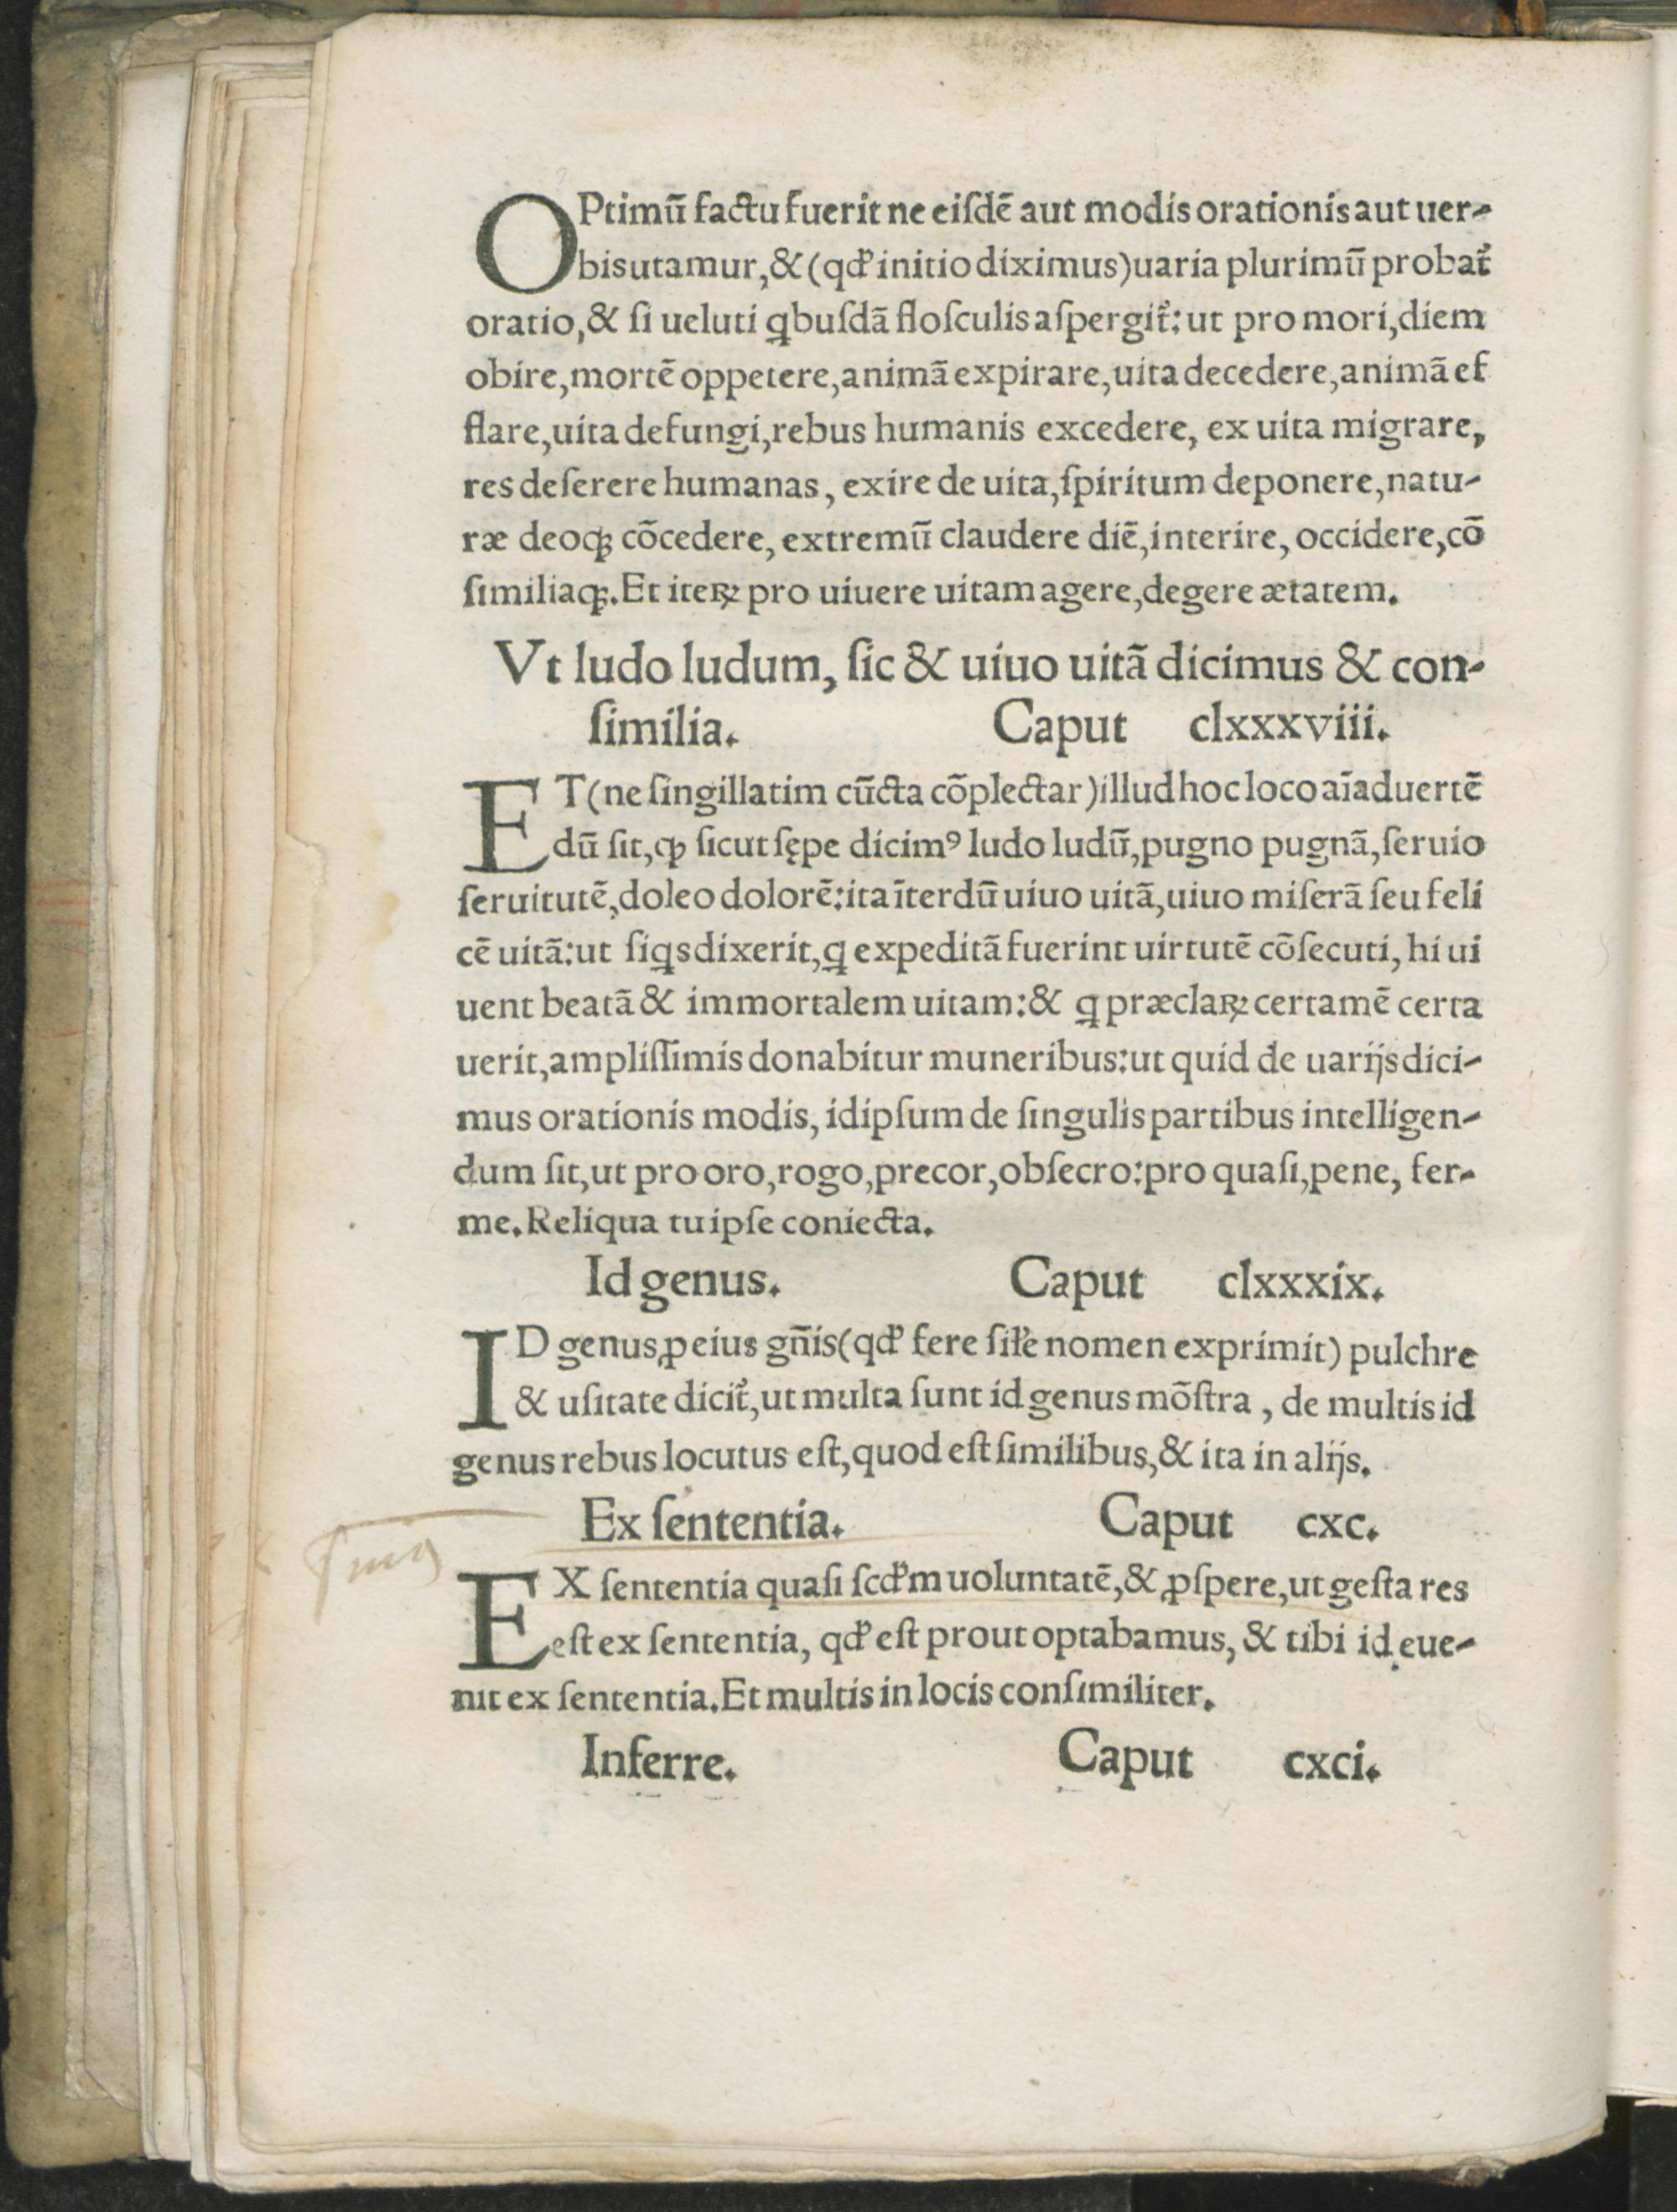 OPtimū factu fuerit ne eiſdē aut modis orationis aut uer-
bis utamur, & (qđ initio diximus) uaria plurimū probat᷑
oratio, & ſi ueluti ꝗbuſdā floſculis aſpergit᷑: ut pro mori, diem
obire, mortē oppetere, animā expirare, uita decedere, animā ef
flare, uita defungi, rebus humanis excedere, ex uita migrare,
res deſerere humanas, exire de uita, ſpiritum deponere, natu-
ræ deoqꝫ cōcedere, extremū claudere diē, interire, occidere, cō
ſimiliaqꝫ. Et iteꝝ pro uiuere uitam agere, degere ætatem.
Vt ludo ludum, ſic & uiuo uitā dicimus & con-
ſimilia. Caput clxxxviii.
ET (ne ſingillatim cūcta cōplectar) illud hoc loco aīaduertē
dū ſit, ꝙ ſicut ſępe dicimꝰ ludo ludū, pugno pugnā, ſeruio
ſeruitutē, doleo dolorē: ita īterdū uiuo uitā, uiuo miſerā ſeu feli
cē uitā: ut ſiꝗs dixerit, ꝗ expeditā fuerint uirtutē cōſecuti, hi ui
uent beatā & immortalem uitam: & ꝗ præclaꝝ certamē certa
uerit, ampliſſimis donabitur muneribus: ut quid de uarijs dici-
mus orationis modis, idipſum de ſingulis partibus intelligen-
dum ſit, ut pro oro, rogo, precor, obſecro: pro quaſi, pene, fer-
me. Reliqua tu ipſe coniecta.
Id genus. Caput clxxxix.
ID genus ꝓ eius gñis (qđ fere ſiłe nomen exprimit) pulchre
& uſitate dicit᷑, ut multa ſunt id genus mōſtra, de multis id
genus rebus locutus eſt, quod eſt ſimilibus, & ita in alijs.
Ex ſententia. Caput cxc.
EX ſententia quaſi ſcđm uoluntatē, & ꝓſpere, ut geſta res
eſt ex ſententia, qđ eſt prout optabamus, & tibi id eue-
nit ex ſententia. Et multis in locis conſimiliter.
Inferre. Caput cxci.